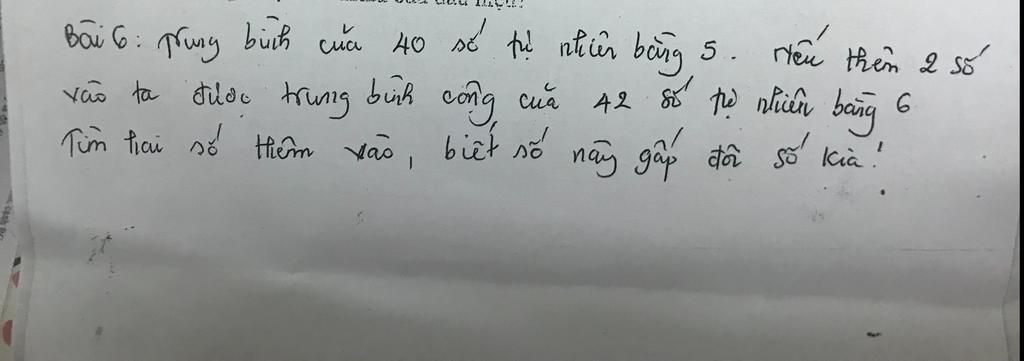 Bài 6: Trung bình của 40 số tự nhiên bằng 5. Nếu thêm 2 số
vào ta được trung bình cộng của 42 số tự nhiên bằng 6
Tìm hai số thêm vào, biết số này gấp đôi số kia!